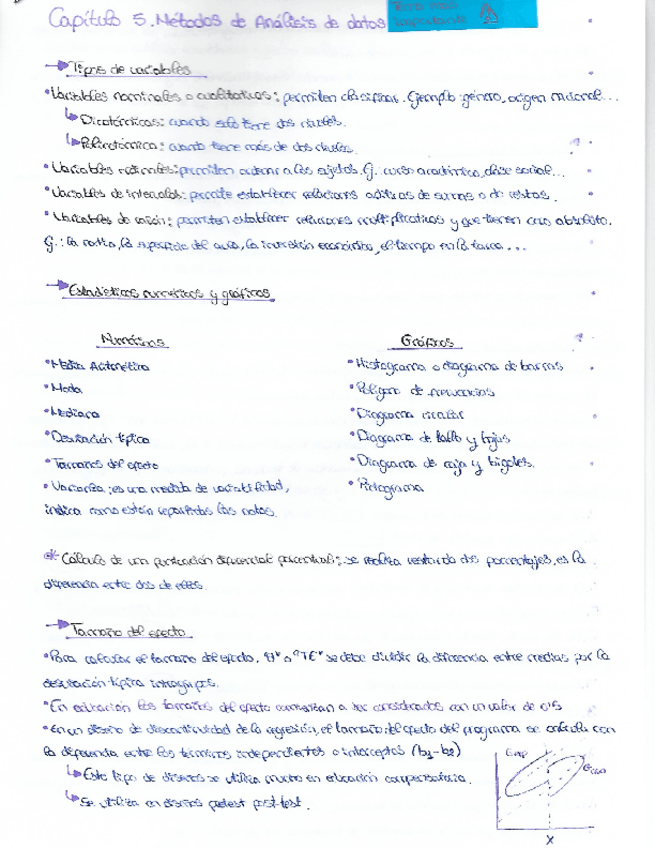 Capítulo 5. Métodos de Análisis de datos
importante
Tipos de variables
• Variables nominales o cualitativas: permiten clasificar. Ejemplo: género, origen nacional...
Dicotómicas: cuando solo tiene dos niveles.
Politómica: cuando tiene más de dos niveles.
• Variables ordinales: permiten ordenar a los sujetos. Ej: curso académico, clase social...
• Variables de intervalos: permite establecer relaciones aditivas de sumas o de restas.
• Variables de razón: permiten establecer relaciones multiplicativas y que tienen cero absoluto.
Ej.: la renta, la superficie del aula, la inversión económica, el tiempo en la tarea...
Estadísticos numéricos y gráficos
Numéricos
Gráficos
• Media Aritmética
• Histograma o diagrama de barras
• Moda
• Polígono de frecuencias
• Mediana
• Diagrama circular
• Desviación típica
• Diagrama de tallo y hojas
• Tamaños del efecto
• Diagrama de caja y bigotes.
• Varianza: es una medida de variabilidad,
• Pictograma
indica como están repartidas las notas.
* Cálculo de una puntuación diferencial porcentual: se realiza restando dos porcentajes, es la
diferencia entre dos de ellos.
Tamaño del efecto
• Para calcular el tamaño del efecto, o "TE" se debe dividir la diferencia entre medias por la
desviación típica intragrupos.
• En educación los tamaños del efecto comienzan a ser considerados con un valor de 0'5
• En un diseño de discontinuidad de la regresión, el tamaño del efecto del programa se calcula con
la diferencia entre los términos independientes o interceptos (b1-b2)
Este tipo de diseños se utiliza mucho en educación compensatoria.
Se utiliza en diseños pretest post-test.
X